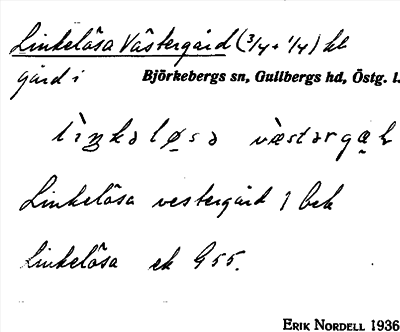 Linkelösa Västergård (3/4 + 1/4) kt
gård i Björkebergs sn, Gullbergs hd, Östg. l.
Linkelösa vestergård 1 bek
Linkelösa ek G 55.
ERIK NORDELL 1936